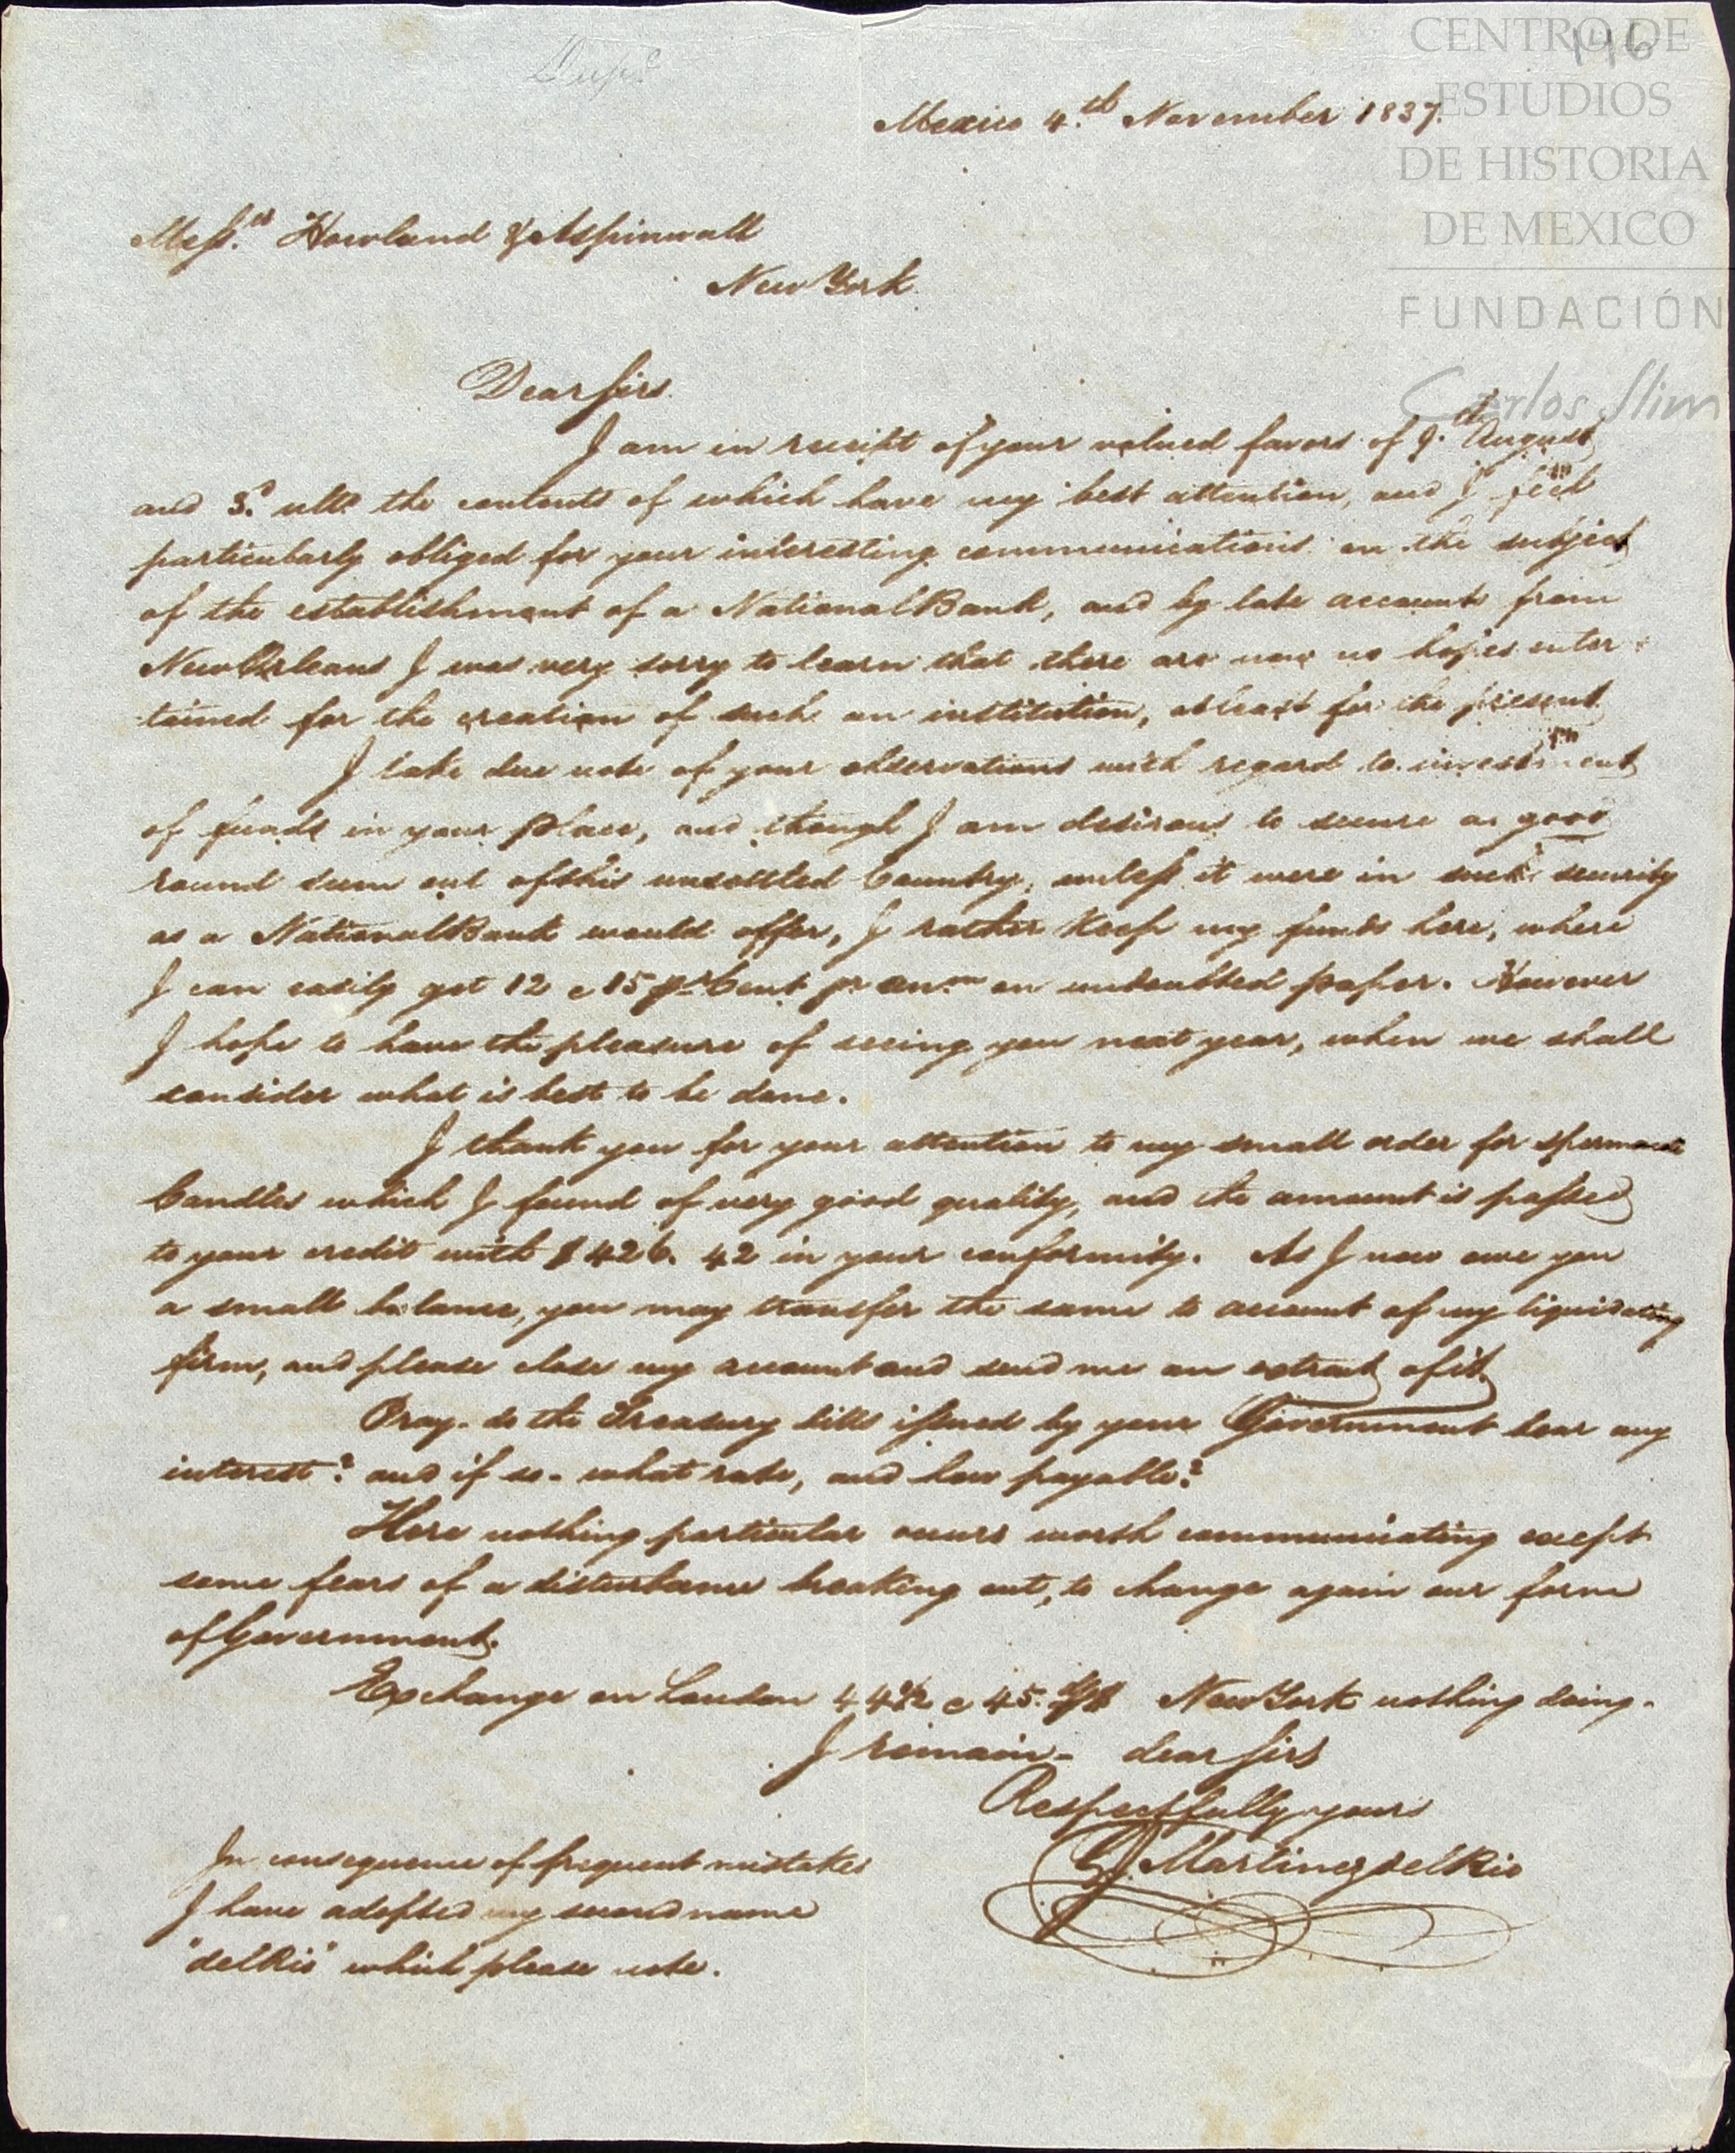 CENTRO DE
ESTUDIOS
DE HISTORIA
DE MEXICO
FUNDACIÓN
Carlos Slim
146
Mexico 4.th November 1837.
Mess.rs Howland & Aspinwall
New York
Dear Sirs
I am in receipt of your valued favors of 9.th August
and 3.d ulto the contents of which have my best attention, and I feel
particularly obliged for your interesting communications on the subject
of the establishment of a National Bank, and by late accounts from
New Orleans I was very sorry to learn that there are now no hopes enter
tained for the creation of such an institution, at least for the present
I take due note of your observations with regard to investment
of funds in your place, and though I am desirous to secure a good
round sum out of this unsettled Country, unless it were in such security
as a National Bank would offer, I rather keep my funds here, where
I can easily get 12 a 15 pr Cent pr ann.m on undoubted paper. However
I hope to have the pleasure of seeing you next year, when we shall
consider what is best to be done.
I thank you for your attention to my small order for
Candles which I found of very good quality, and the amount is passed
to your credit with $426. 42 in your conformity. As I now owe you
a small balance, you may transfer the same to account of my liquidating
firm, and please close my account and send me an extract of it.
Pray. do the Treasury bills issued by your Government bear any
interest? and if so - what rate, and how payable?
Here nothing particular occurs worth communicating except
some fears of a disturbance breaking out, to change again our form
of Government.
Exchange on London 44½ a 45. New York nothing doing.
I remain - dear Sirs
Respectfully yours
Martinez del Rio
In consequence of frequent mistakes
I have adopted my second name
"del Rio" which please note.